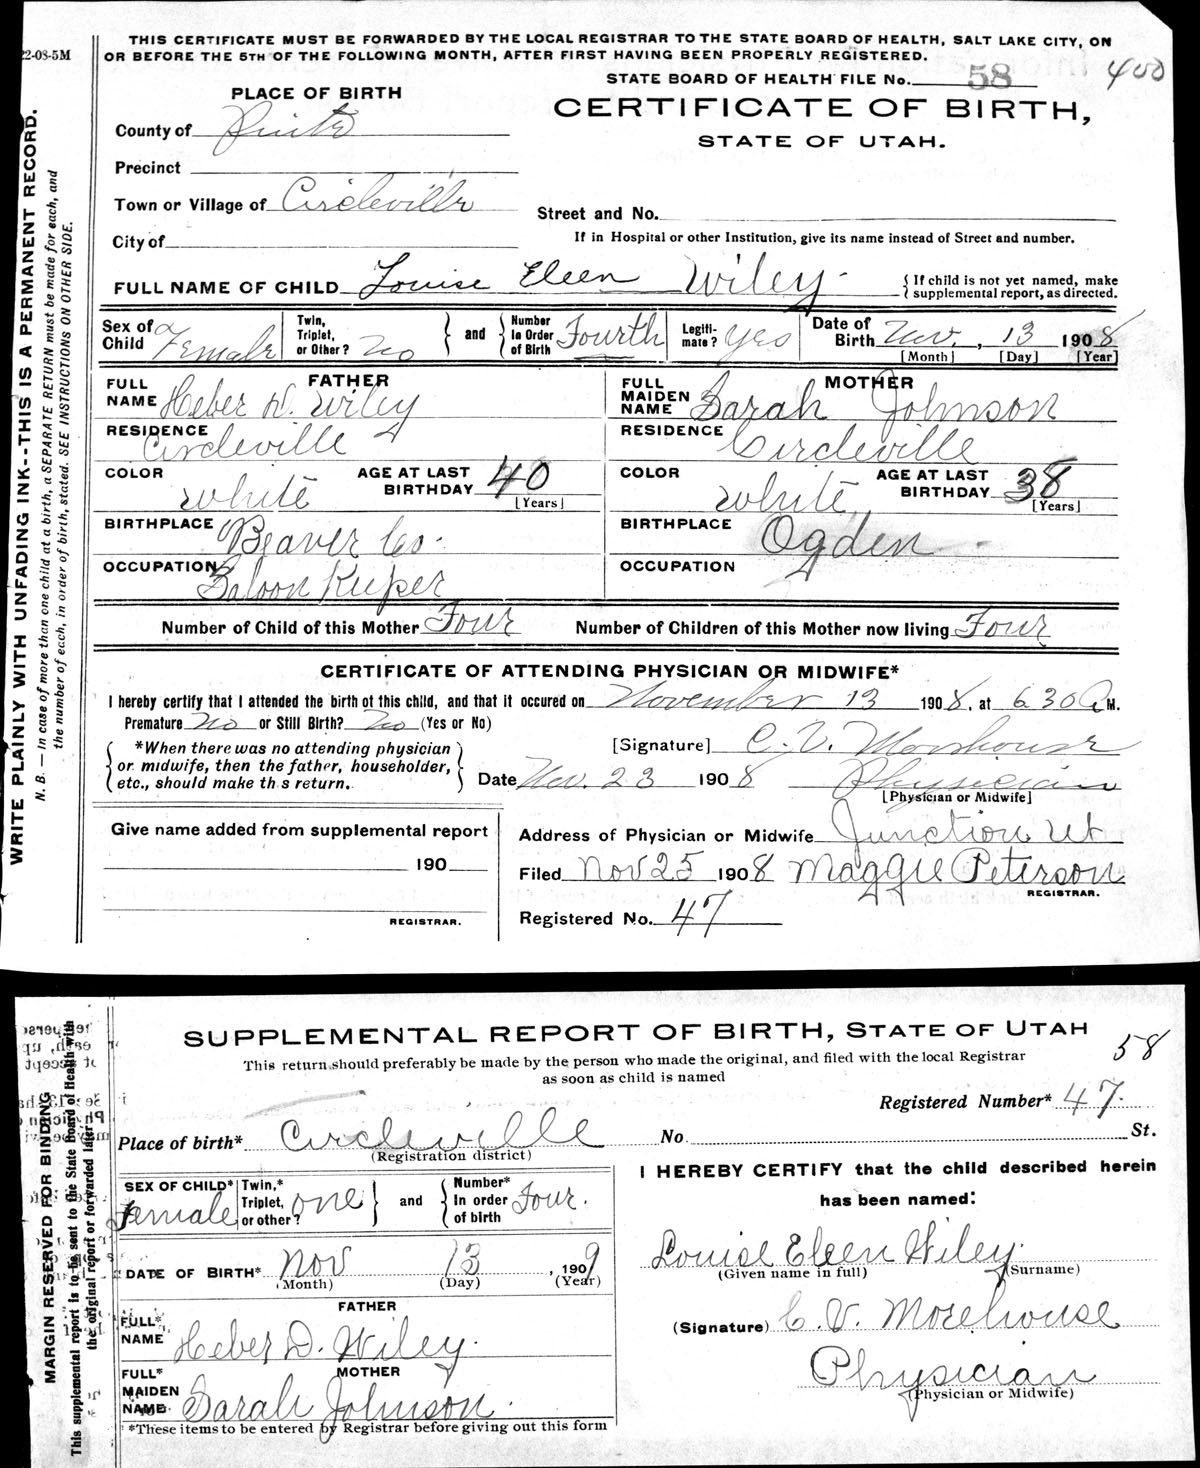 22-08-5M
THIS CERTIFICATE MUST BE FORWARDED BY THE LOCAL REGISTRAR TO THE STATE BOARD OF HEALTH, SALT LAKE CITY, ON
OR BEFORE THE 5TH OF THE FOLLOWING MONTH, AFTER FIRST HAVING BEEN PROPERLY REGISTERED.
STATE BOARD OF HEALTH FILE No. 58
400
PLACE OF BIRTH
CERTIFICATE OF BIRTH,
STATE OF UTAH.
County of Piute
Precinct
Town or Village of Circleville
Street and No.
City of
If in Hospital or other Institution, give its name instead of Street and number.
FULL NAME OF CHILD Louise Eleen Wiley
{ If child is not yet named, make
{ supplemental report, as directed.
Sex of Child Female
Twin, Triplet, or Other? No } and { Number In Order of Birth Fourth
Legiti-mate? Yes
Date of Birth Nov. , 13 1908
[Month] [Day] [Year]
FATHER
FULL NAME Heber D. Wiley
RESIDENCE Circleville
COLOR White
AGE AT LAST BIRTHDAY 40
[Years]
BIRTHPLACE Beaver Co.
OCCUPATION Saloon Keeper
MOTHER
FULL MAIDEN NAME Sarah Johnson
RESIDENCE Circleville
COLOR White
AGE AT LAST BIRTHDAY 38
[Years]
BIRTHPLACE Ogden
OCCUPATION
Number of Child of this Mother Four Number of Children of this Mother now living Four
CERTIFICATE OF ATTENDING PHYSICIAN OR MIDWIFE*
I hereby certify that I attended the birth of this child, and that it occured on November 13 1908, at 6 30 A M.
Premature No or Still Birth? No (Yes or No)
{ *When there was no attending physician }
{ or midwife, then the father, householder, }
{ etc., should make th s return. }
[Signature] C. V. Morehouse
Date Nov. 23 1908 Physician
[Physician or Midwife]
Give name added from supplemental report
190
REGISTRAR.
Address of Physician or Midwife Junction Ut
Filed Nov 25 1908 Maggie Peterson
REGISTRAR.
Registered No. 47
WRITE PLAINLY WITH UNFADING INK--THIS IS A PERMANENT RECORD.
N. B. — In case of more than one child at a birth, a SEPARATE RETURN must be made for each, and
the number of each, in order of birth, stated. SEE INSTRUCTIONS ON OTHER SIDE.
SUPPLEMENTAL REPORT OF BIRTH, STATE OF UTAH
58
This return should preferably be made by the person who made the original, and filed with the local Registrar
as soon as child is named
Registered Number* 47
Place of birth* Circleville No. St.
(Registration district)
SEX OF CHILD* Female
Twin,* Triplet, or other? one } and { Number* In order of birth Four.
DATE OF BIRTH* Nov 13 , 1909
(Month) (Day) (Year)
FATHER
FULL* NAME Heber D. Wiley.
MOTHER
FULL* MAIDEN NAME Sarah Johnson.
*These items to be entered by Registrar before giving out this form
I HEREBY CERTIFY that the child described herein
has been named:
Louise Eleen Wiley.
(Given name in full) (Surname)
(Signature) C. V. Morehouse
Physician
(Physician or Midwife)
MARGIN RESERVED FOR BINDING
This supplemental report is to be sent to the State Board of Health with
the original report or forwarded later